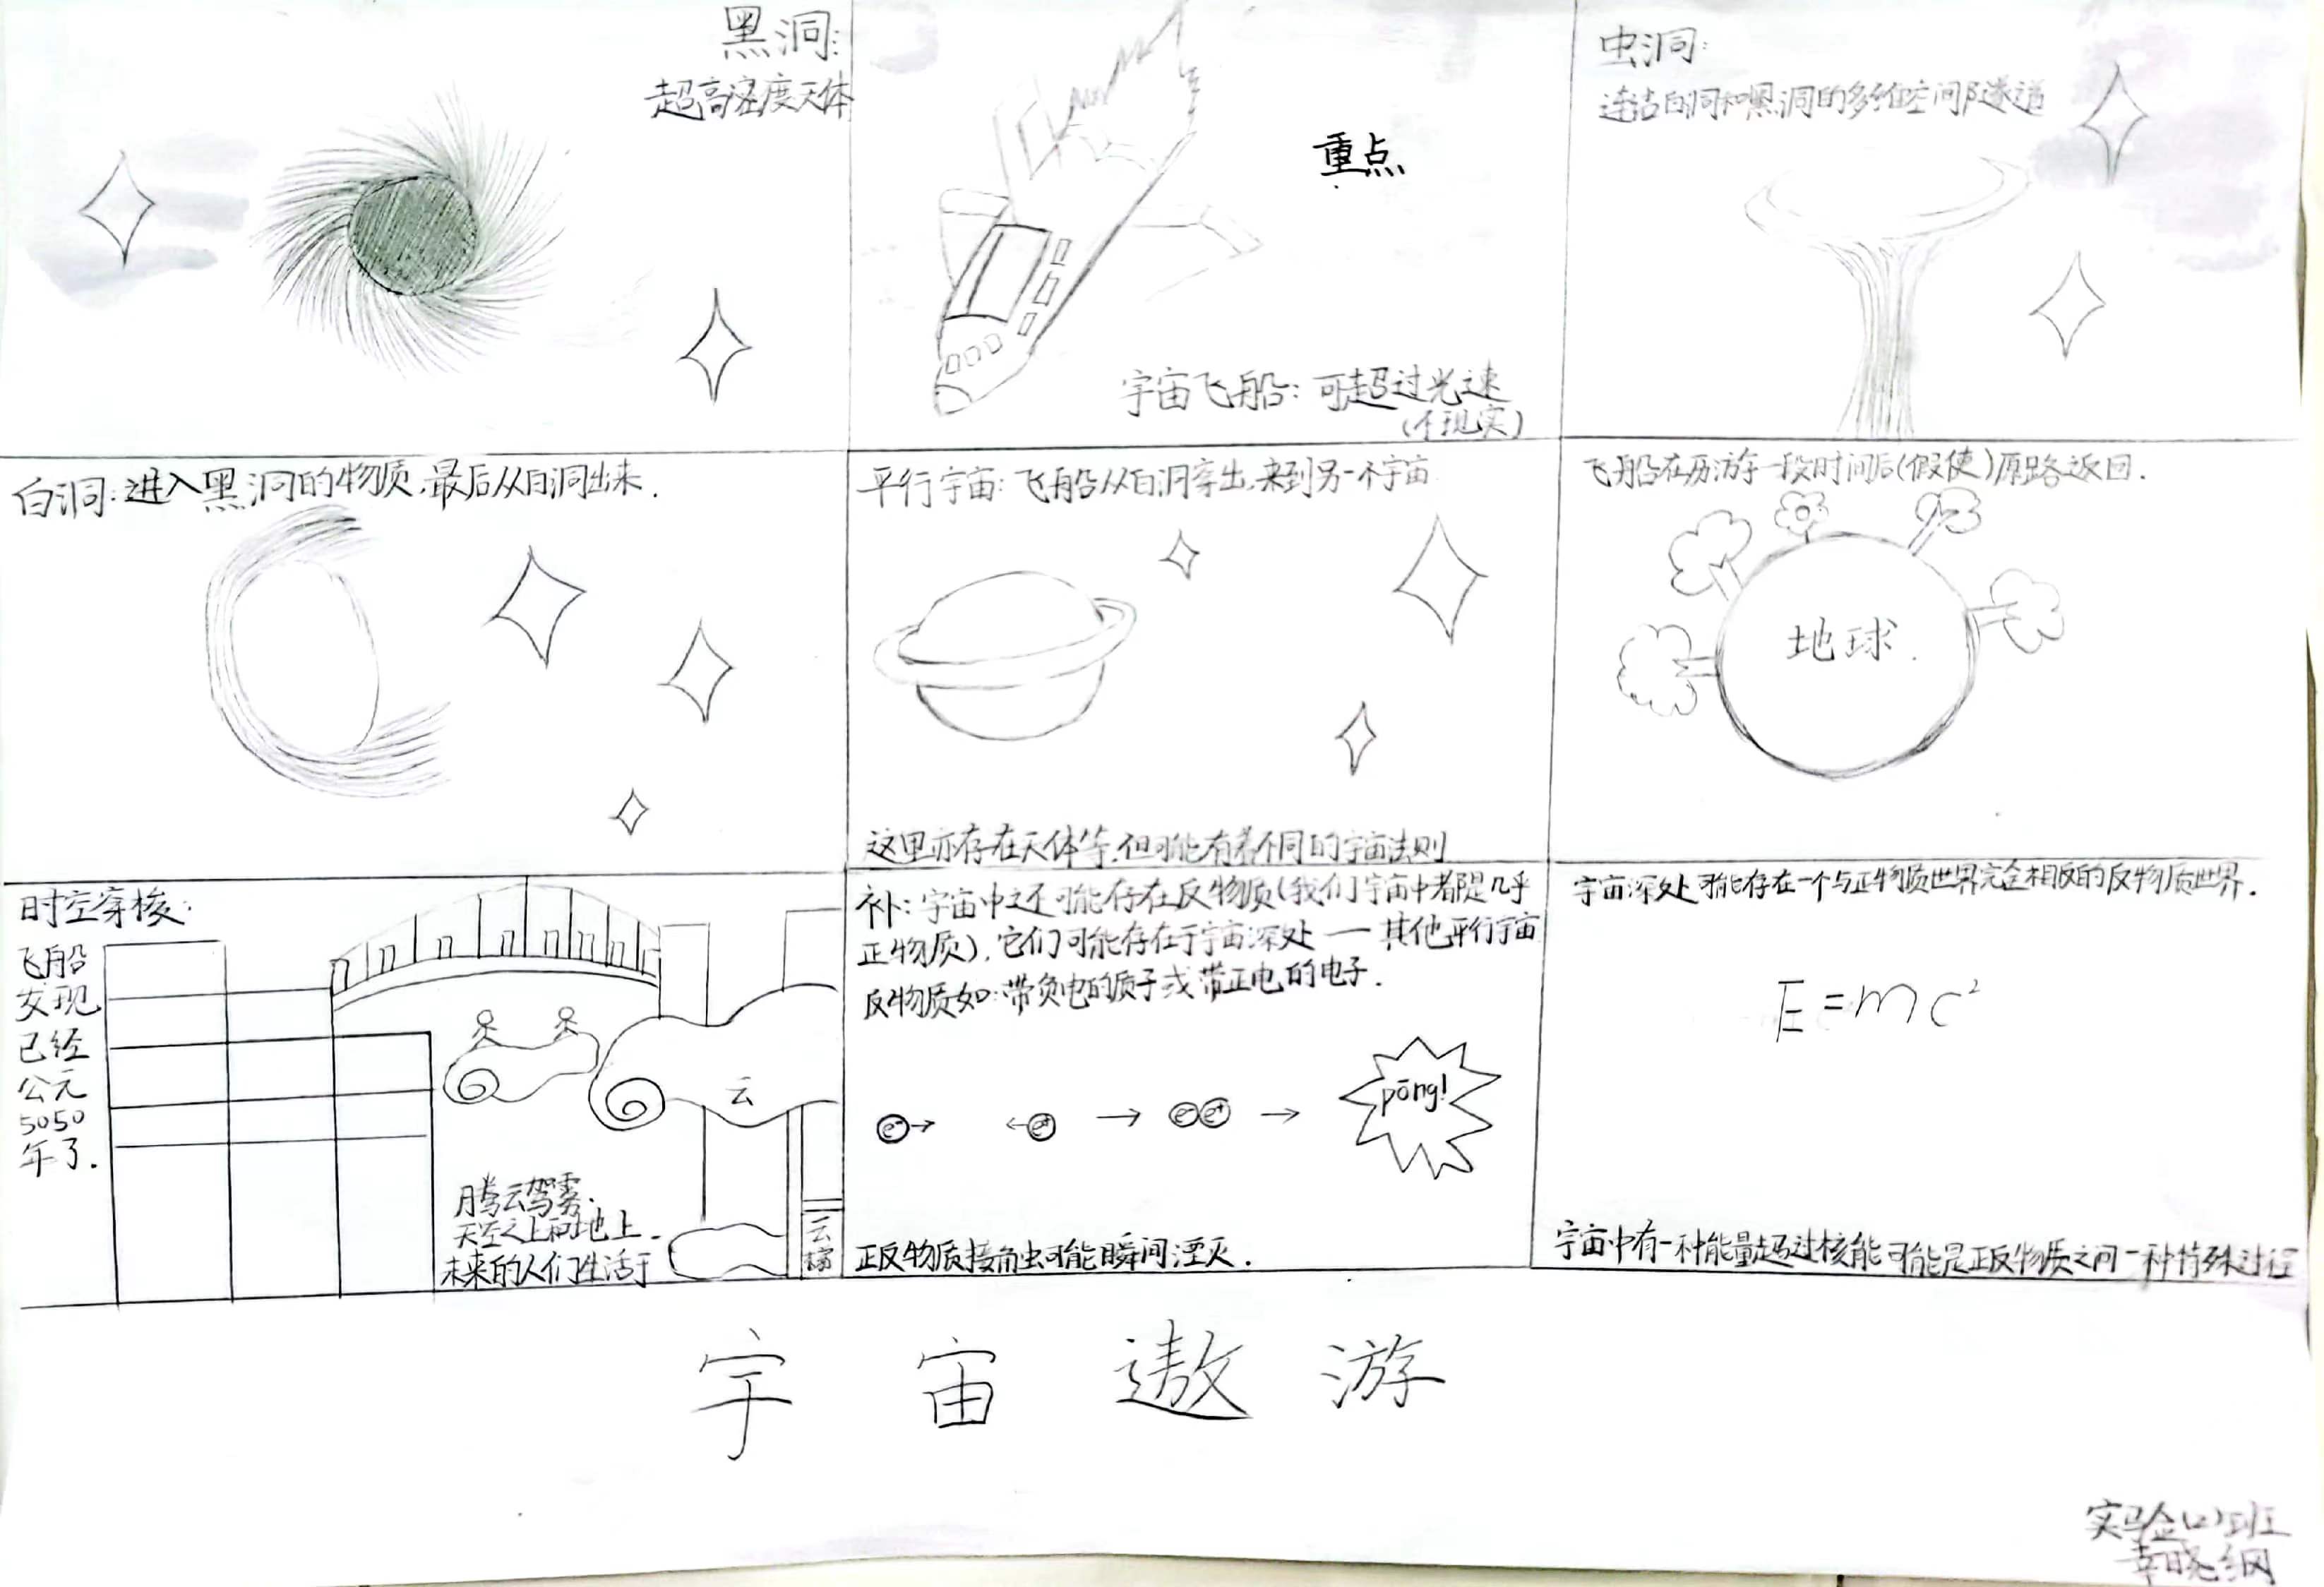 黑洞:
超高密度天体
重点
宇宙飞船: 可超过光速
(不现实)
虫洞:
连结白洞和黑洞的多维空间隧道
白洞: 进入黑洞的物质,最后从白洞出来.
平行宇宙: 飞船从白洞穿出,来到另一个宇宙
这里亦存在天体等,但可能有着不同的宇宙法则
飞船在历游一段时间后(假使)原路返回.
地球.
时空穿梭:
飞船
发现
已经
公元
5050
年了.
云
腾云驾雾.
天空之上和地上.
未来的人们生活于
云梯
补: 宇宙中还可能存在反物质(我们宇宙中都是几乎
正物质), 它们可能存在于宇宙深处——其他平行宇宙
反物质如: 带负电的质子或带正电的电子.
e⁻→ ←e⁺ → e⁻e⁺ → pōng!
正反物质接触可能瞬间湮灭.
宇宙深处可能存在一个与正物质世界完全相反的反物质世界.
E=mc²
宇宙中有一种能量超过核能可能是正反物质之间一种特殊过程
宇宙遨游
实验(2)班